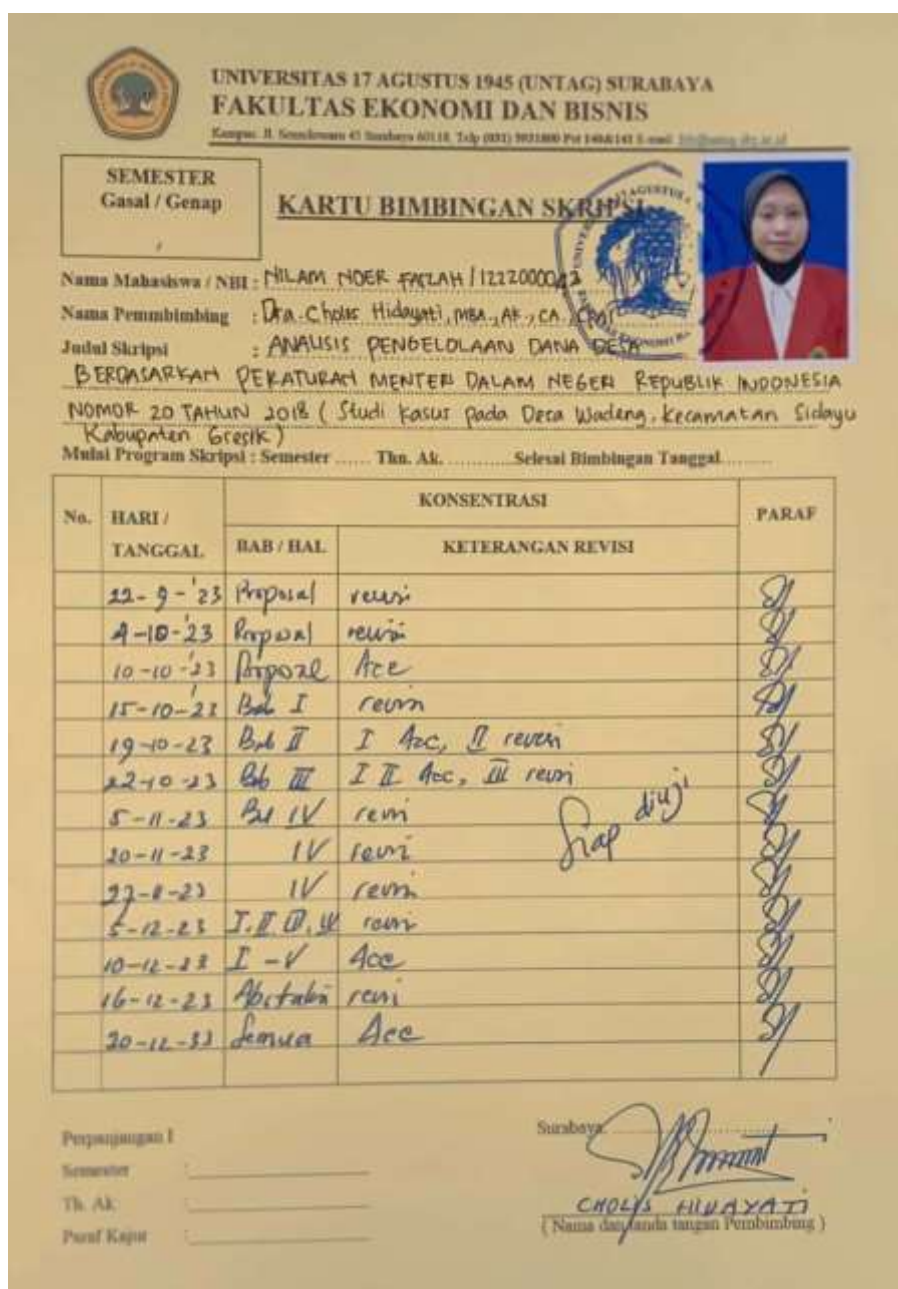 UNIVERSITAS 17 AGUSTUS 1945 (UNTAG) SURABAYA
FAKULTAS EKONOMI DAN BISNIS
Kampus. Jl. Semolowaru 45 Surabaya 60118, Telp (031) 5931800 E-mail
SEMESTER
Gasal / Genap
/
KARTU BIMBINGAN SKRIPSI
Nama Mahasiswa / NBI : NILAM NOER FAIZAH / 1222000042
Nama Pemmbimbing : Dra. Cholis Hidayati, MBA., Ak., CA., CPAI
Judul Skripsi : ANALISIS PENGELOLAAN DANA DESA
BERDASARKAN PERATURAN MENTERI DALAM NEGERI REPUBLIK INDONESIA
NOMOR 20 TAHUN 2018 ( Studi Kasus pada Desa Wadeng, Kecamatan Sidayu
Kabupaten Gresik )
Mulai Program Skripsi : Semester ...... Thn. Ak. ............ Selesai Bimbingan Tanggal ..........
No. HARI / TANGGAL KONSENTRASI PARAF
BAB / HAL KETERANGAN REVISI
22-9-'23 Proposal revisi
4-10-'23 Proposal revisi
10-10-'23 Proposal Acc
15-10-'23 Bab I revisi
19-10-23 Bab II I Acc, II revisi
22-10-23 Bab III I II Acc, III revisi
5-11-23 Bab IV revisi
Siap diuji
20-11-23 IV revisi
27-11-23 IV revisi
5-12-23 I, II, III, IV revisi
10-12-23 I - V Acc
16-12-23 revisi
20-12-23 Semua Acc
Perpanjangan I
Semester :
Th. Ak :
Paraf Kajur :
Surabaya,
CHOLIS HIDAYATI
( Nama dan tanda tangan Pembimbing )